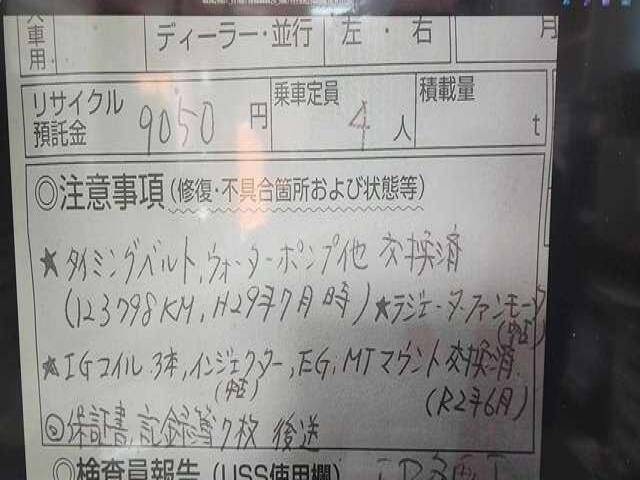 車用 ディーラー・並行 左・右 月
リサイクル預託金 9050円 乗車定員 4人 積載量 t
◎注意事項(修復・不具合箇所および状態等)
★タイミングベルト,ウォーターポンプ他 交換済
(123798KM, H29年7月時) ★ラジエータファンモータ
(中古)
★IGコイル3本,インジェクター,EG,MTマウント交換済
(中古) (R2年6月)
◎保証書,記録簿7枚 後送
◎検査員報告(USS使用欄)